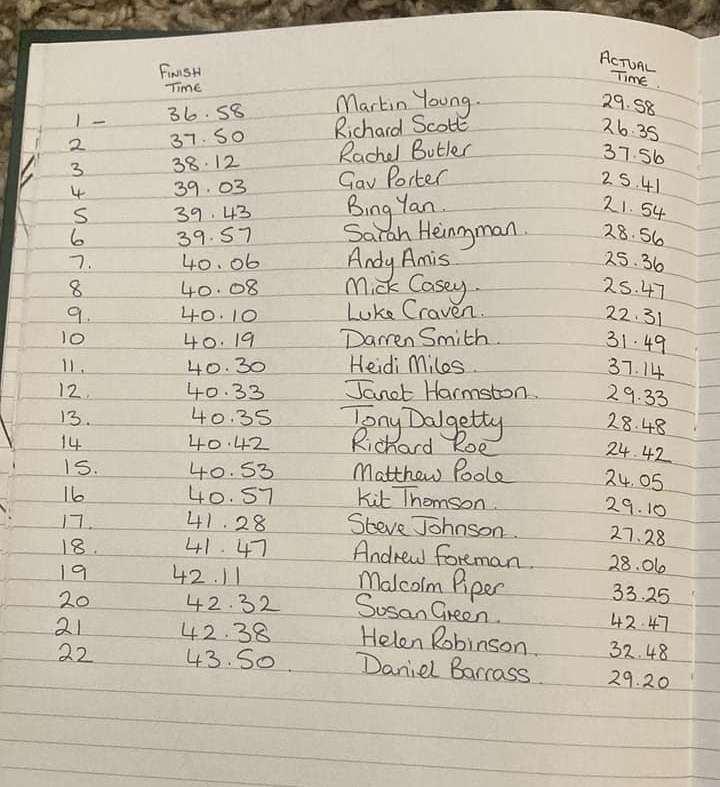 FINISH TIME ACTUAL TIME.
1 - 36.58 Martin Young. 29.58
2 37.50 Richard Scott 26.35
3 38.12 Rachel Butler 37.56
4 39.03 Gav Porter 25.41
5 39.43 Bing Yan. 21.54
6 39.57 Sarah Heinzman. 28.56
7. 40.06 Andy Amis 25.36
8 40.08 Mick Casey. 25.47
9. 40.10 Luke Craven. 22.31
10 40.19 Darren Smith. 31.49
11. 40.30 Heidi Miles 37.14
12. 40.33 Janet Harmston. 29.33
13. 40.35 Tony Dalgetty 28.48
14 40.42 Richard Roe 24.42
15. 40.53 Matthew Poole 24.05
16 40.57 Kit Thomson. 29.10
17. 41.28 Steve Johnson. 27.28
18. 41.47 Andrew Foreman. 28.06
19 42.11 Malcolm Piper 33.25
20 42.32 Susan Green. 42.47
21 42.38 Helen Robinson. 32.48
22 43.50. Daniel Barrass. 29.20